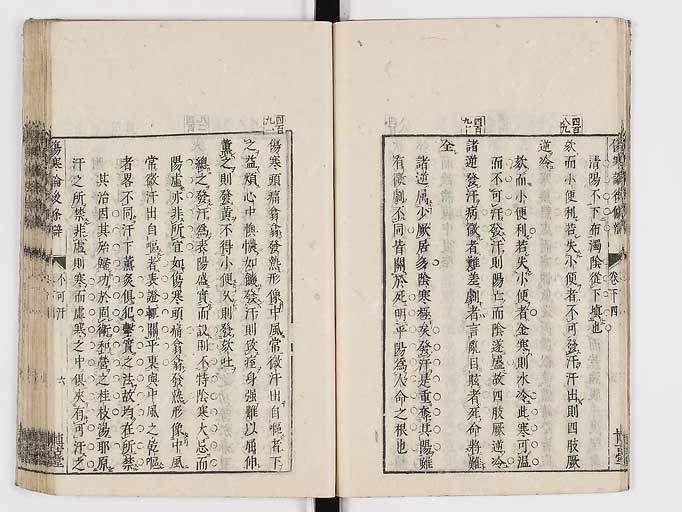 清陽不下布濁陰從下塡也
欬而小便利若失小便者不可發汗汗出則四肢厥
逆冷
欬而小便利若失小便者金寒則水冷此寒可溫
而不可汗發汗則陽亡而陰遂盛故四肢厥逆冷
諸逆發汗病微者難差劇者言亂目眩者死命將難
全
諸逆屬少厥居多陰寒極矣發汗是重奪其陽雖
有微劇不同皆關於死明乎陽爲人命之根也
四百九一
傷寒頭痛翕翕發熱形像中風常微汗出自嘔者下
之益煩心中懊憹如饑發汗則致痓身強難以屈伸
薰之則發黃不得小便久則發欬吐
總之發汗爲表陽盛實而設則不特陰寒大忌而
陽虛亦非所宜如傷寒頭痛翕翕發熱形像中風
常微汗出自嘔者表證輒關乎裏與中風之乾嘔
者畧不同汗下薰灸俱犯擊實之法故均在所禁
其治法因其始歸功於固衛和營之桂枝湯耶原
汗之所禁非虛則寒而虛寒之中俱來有可汗之
傷寒論後條辨
不可汗
六